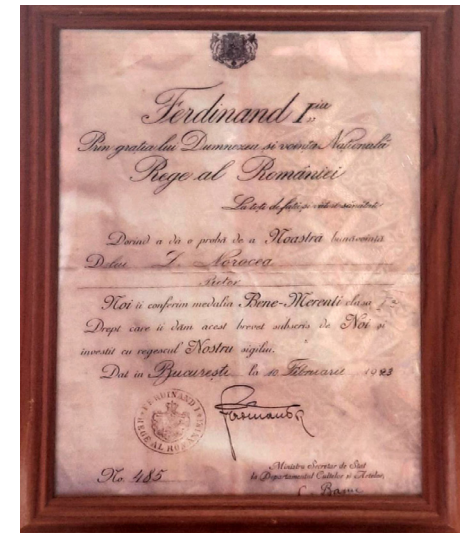 Ferdinand I
Prin grația lui Dumnezeu și voința Națională
Rege al României
La toți de față și viitori sănătate
Dorind a da o probă de a Noastră bunăvoință
D-lui I. Norocea
Noi îi conferim medalia Bene-Merenti clasa I-a
Drept care îi dăm acest brevet subscris de Noi și
investit cu regescul Nostru sigiliu.
Dat în București la 10 Februarie 1923
FERDINAND I REGE AL ROMÂNIEI
Ferdinand
No. 485
Ministru Secretar de Stat
la Departamentul Cultelor și Artelor,